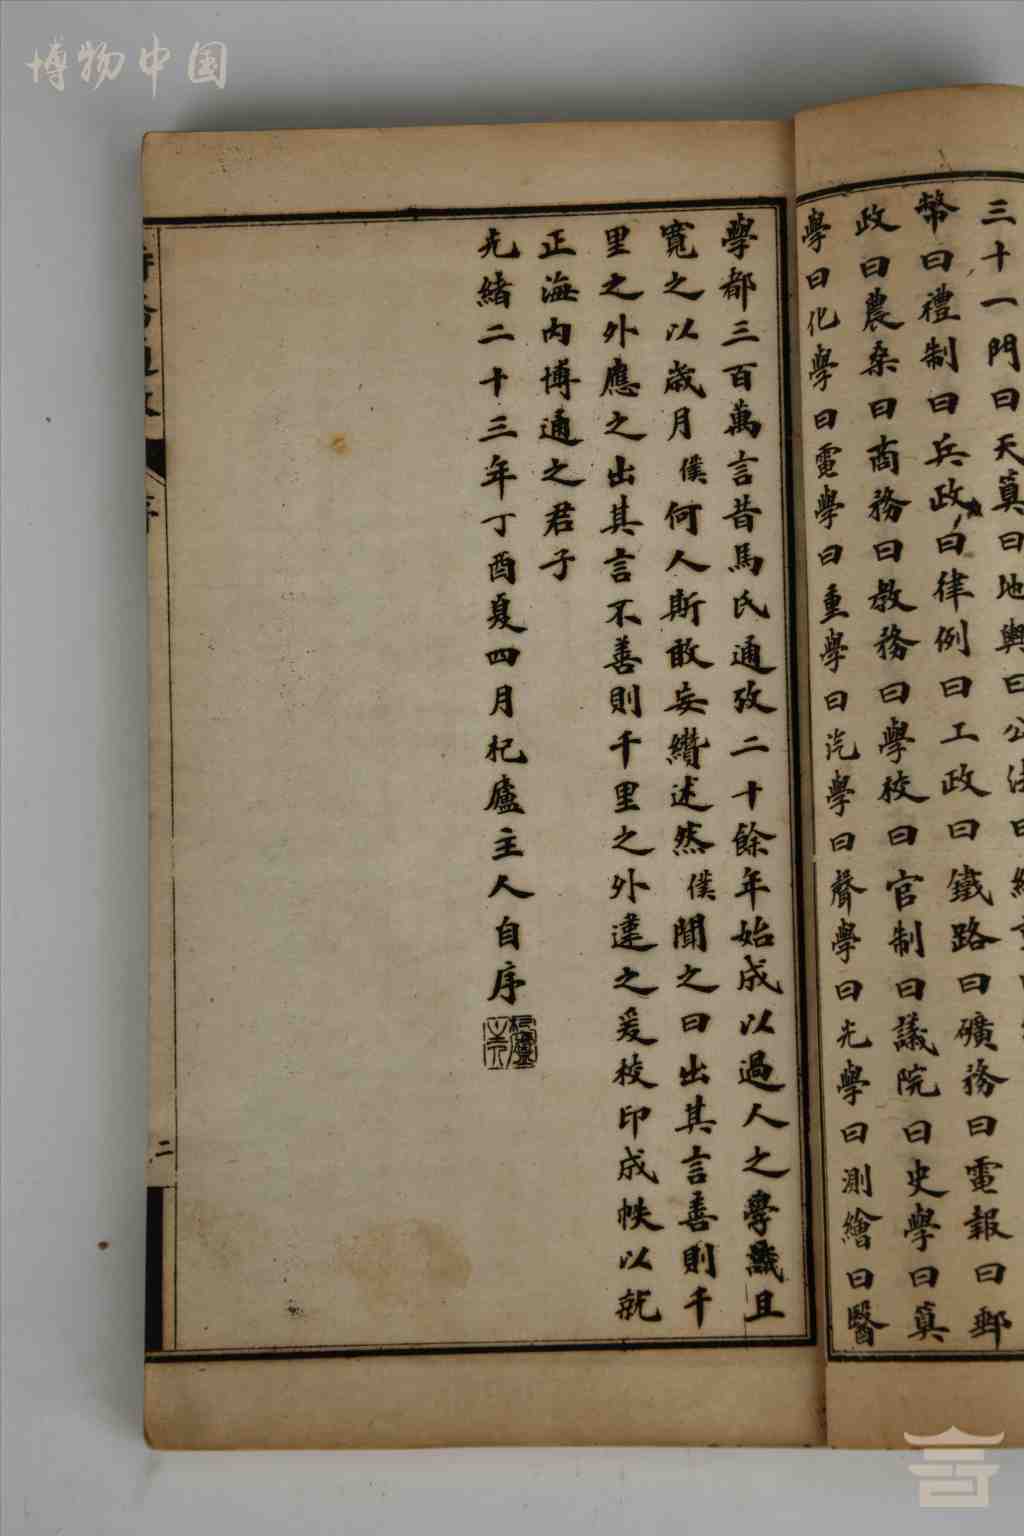 博物中国
三十一門曰天算曰地輿曰公法曰
幣曰禮制曰兵政曰律例曰工政曰鐵路曰礦務曰電報曰郵
政曰農桑曰商務曰教務曰學校曰官制曰議院曰史學曰算
學曰化學曰電學曰重學曰汽學曰聲學曰光學曰測繪曰醫
學都三百萬言昔馬氏通攷二十餘年始成以過人之學識且
寬之以歲月僕何人斯敢妄纘述然僕聞之曰出其言善則千
里之外應之出其言不善則千里之外違之爰校印成帙以就
正海內博通之君子
光緒二十三年丁酉夏四月杞廬主人自序
杞廬主人
序
二